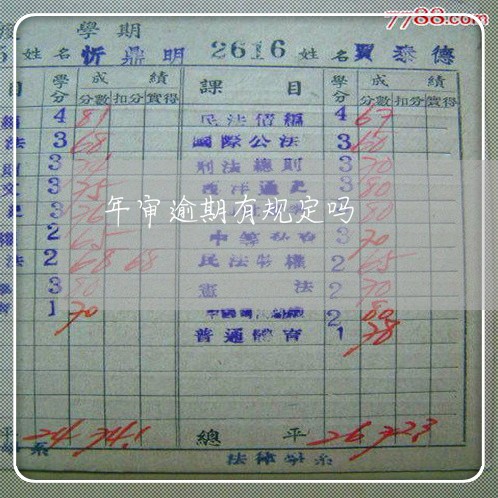 7788.com
學期
姓名 忻鼎明 2616 姓名 賈泰德
目 學分 成績 課目 學分 成績
分數 扣分 實得 分數 扣分 實得
4 81 民法債編 4 67
法 3 68 國際公法 3 60
3 刑法總則 3 70
3 75 西洋通史 3 80
年审逾期有规定吗
2 65 3 70
法 2 68 68 民法物權 2 65
3 80 憲法 2 70
1 70 2 80
普通體育 1 78
平 24 74.1 總平 26 72.3
系 法律學系